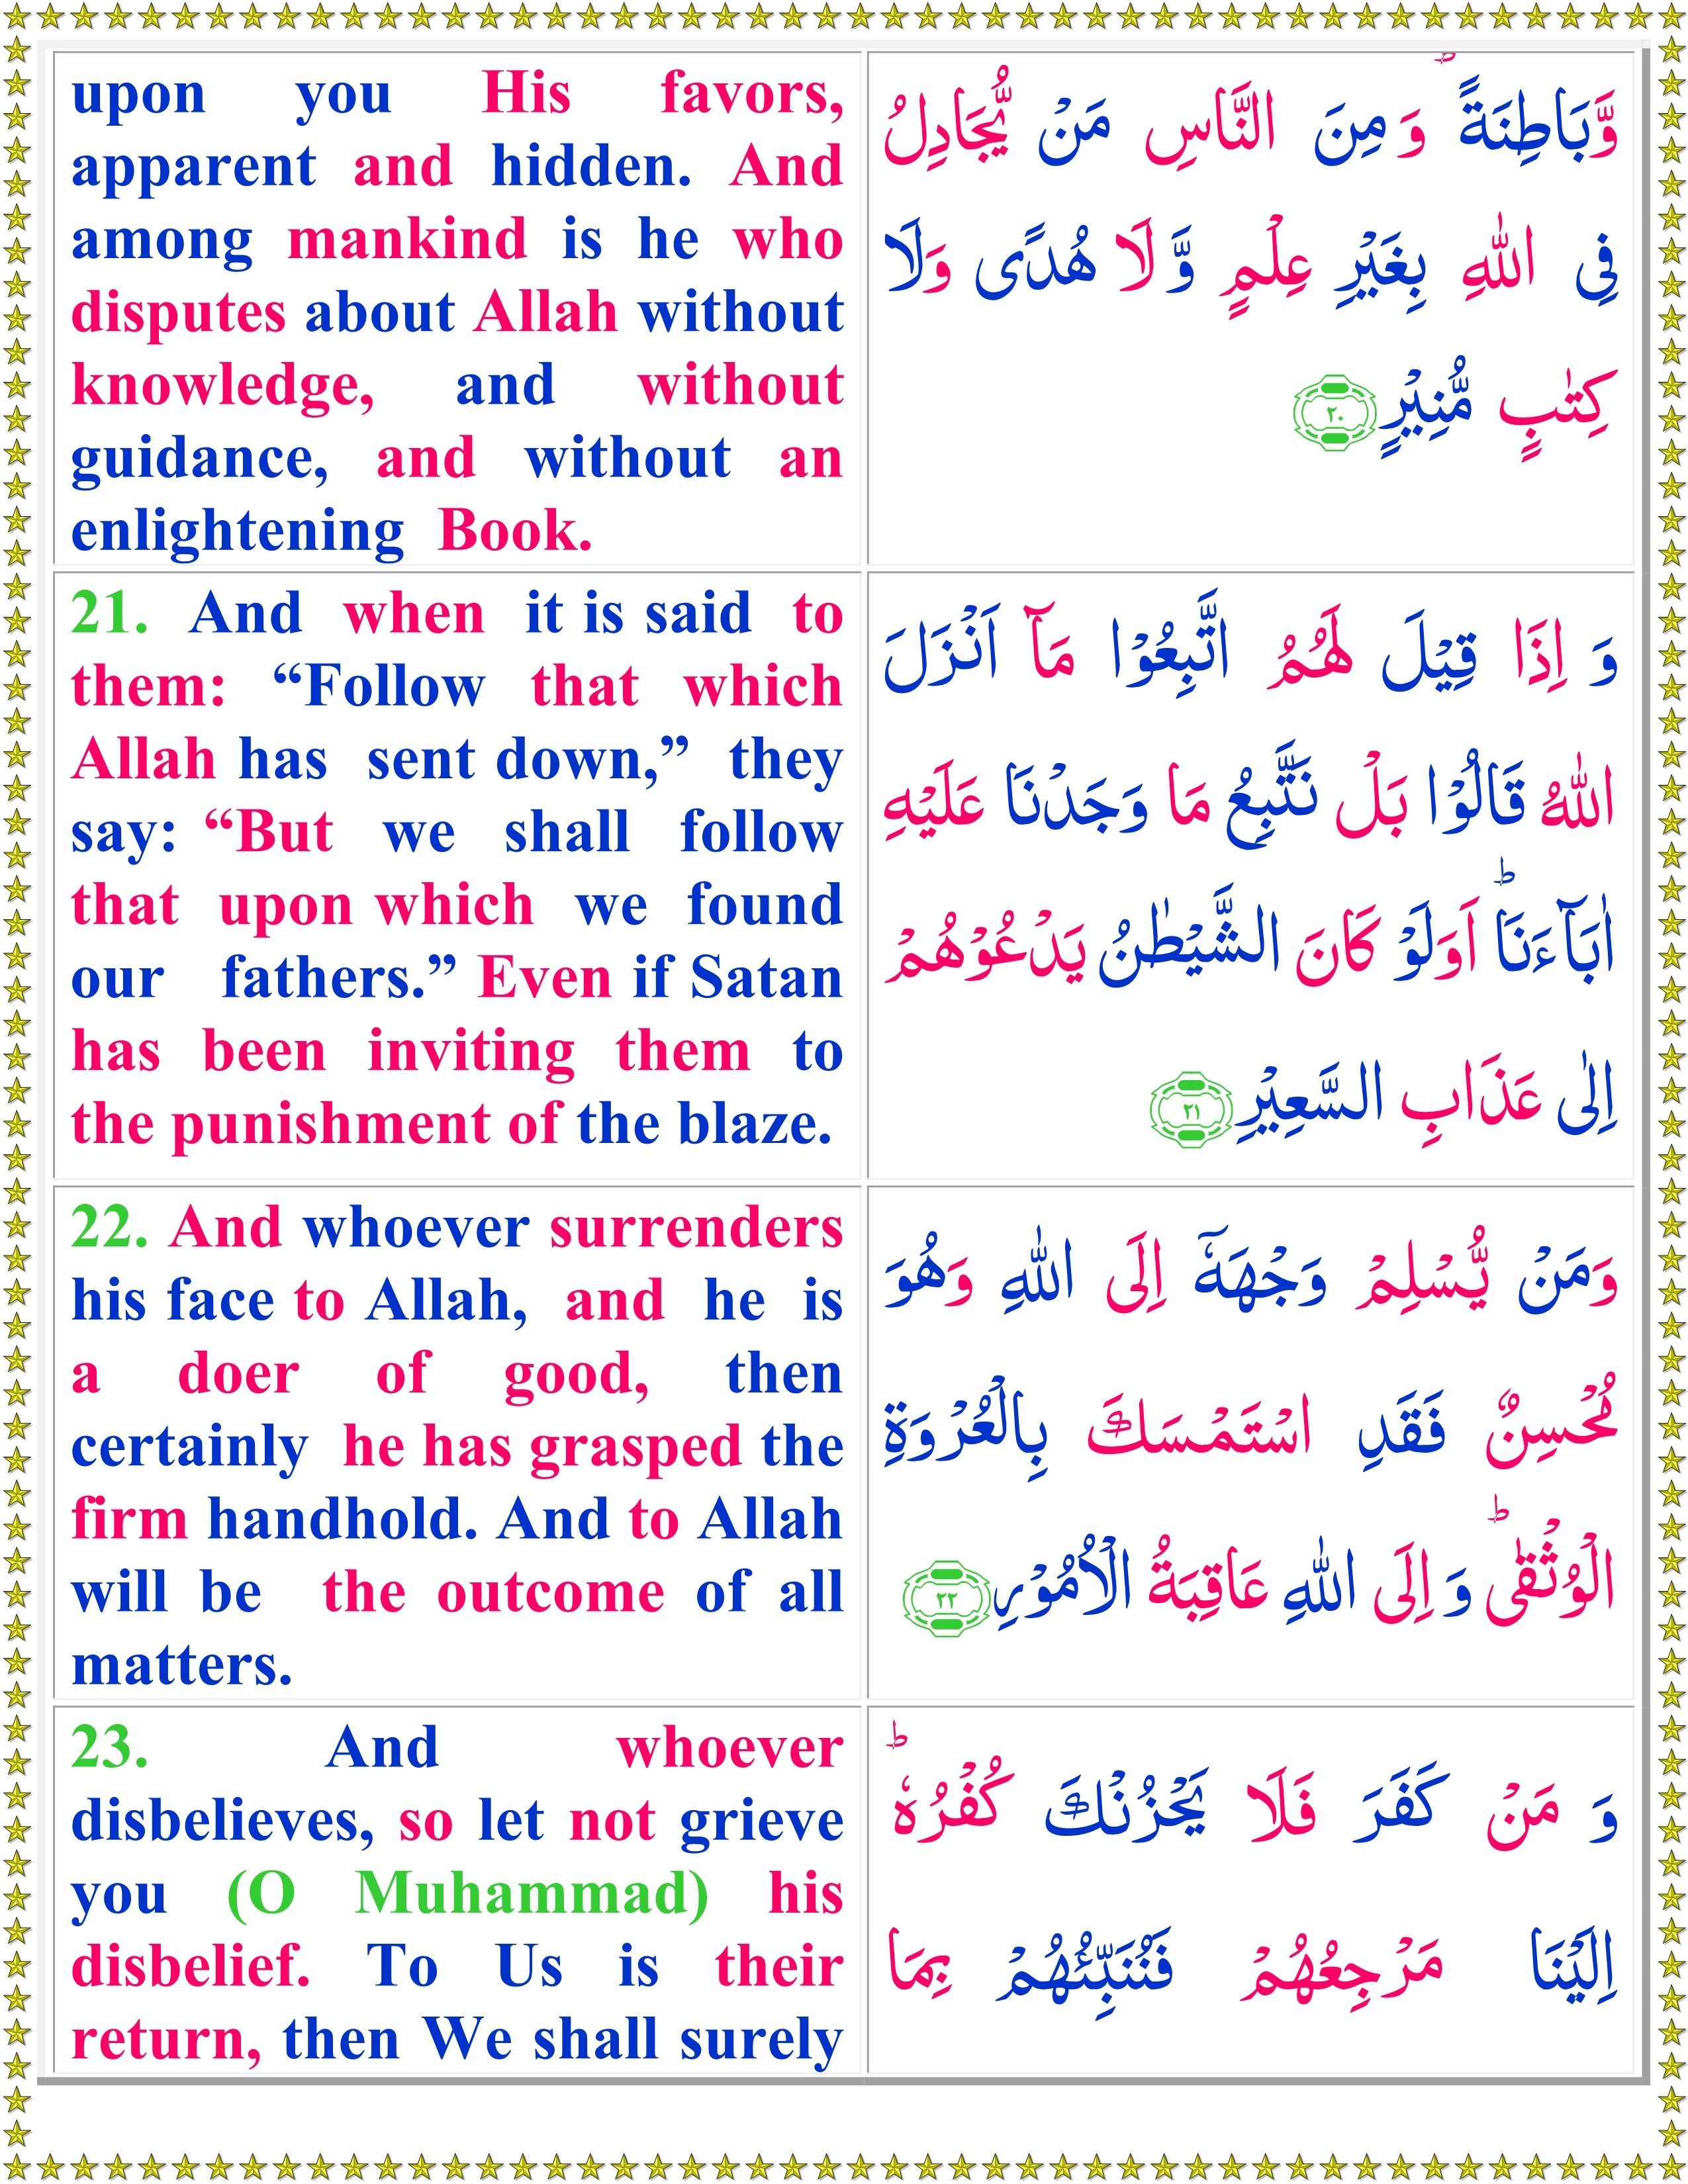 upon you His favors,
apparent and hidden. And
among mankind is he who
disputes about Allah without
knowledge, and without
guidance, and without an
enlightening Book.
وَّبَاطِنَةً ؕ وَ مِنَ النَّاسِ مَنْ يُّجَادِلُ
فِى اللّٰهِ بِغَيْرِ عِلْمٍ وَّ لَا هُدًى وَلَا
كِتٰبٍ مُّنِيْرٍ ٢٠
21. And when it is said to
them: “Follow that which
Allah has sent down,” they
say: “But we shall follow
that upon which we found
our fathers.” Even if Satan
has been inviting them to
the punishment of the blaze.
وَ اِذَا قِيْلَ لَهُمُ اتَّبِعُوْا مَاۤ اَنْزَلَ
اللّٰهُ قَالُوْا بَلْ نَتَّبِعُ مَا وَجَدْنَا عَلَيْهِ
اٰبَآءَنَا ؕ اَوَلَوْ كَانَ الشَّيْطٰنُ يَدْعُوْهُمْ
اِلٰى عَذَابِ السَّعِيْرِ ٢١
22. And whoever surrenders
his face to Allah, and he is
a doer of good, then
certainly he has grasped the
firm handhold. And to Allah
will be the outcome of all
matters.
وَمَنْ يُّسْلِمْ وَجْهَهٗۤ اِلَى اللّٰهِ وَهُوَ
مُحْسِنٌ فَقَدِ اسْتَمْسَكَ بِالْعُرْوَةِ
الْوُثْقٰى ؕ وَ اِلَى اللّٰهِ عَاقِبَةُ الْاُمُوْرِ ٢٢
23. And whoever
disbelieves, so let not grieve
you (O Muhammad) his
disbelief. To Us is their
return, then We shall surely
وَ مَنْ كَفَرَ فَلَا يَحْزُنْكَ كُفْرُهٗ ؕ
اِلَيْنَا مَرْجِعُهُمْ فَنُنَبِّئُهُمْ بِمَا